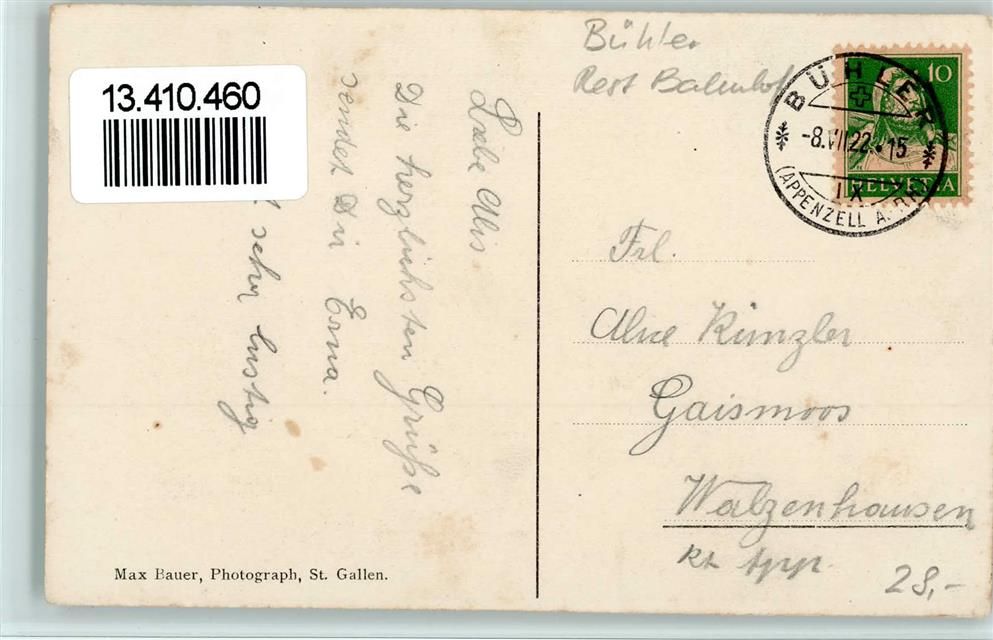 13.410.460
Bühler
Rest Bahnhof
10
HELVETIA
BÜHLER
-8.VII.22.-15
IX
(APPENZELL A. RH.)
Liebe Alis.
Die herzlichsten Grüße
sendet Dir Erna.
sehr lustig
Frl.
Alice Künzler
Gaismoos
Walzenhausen
Kt. App.
28,-
Max Bauer, Photograph, St. Gallen.